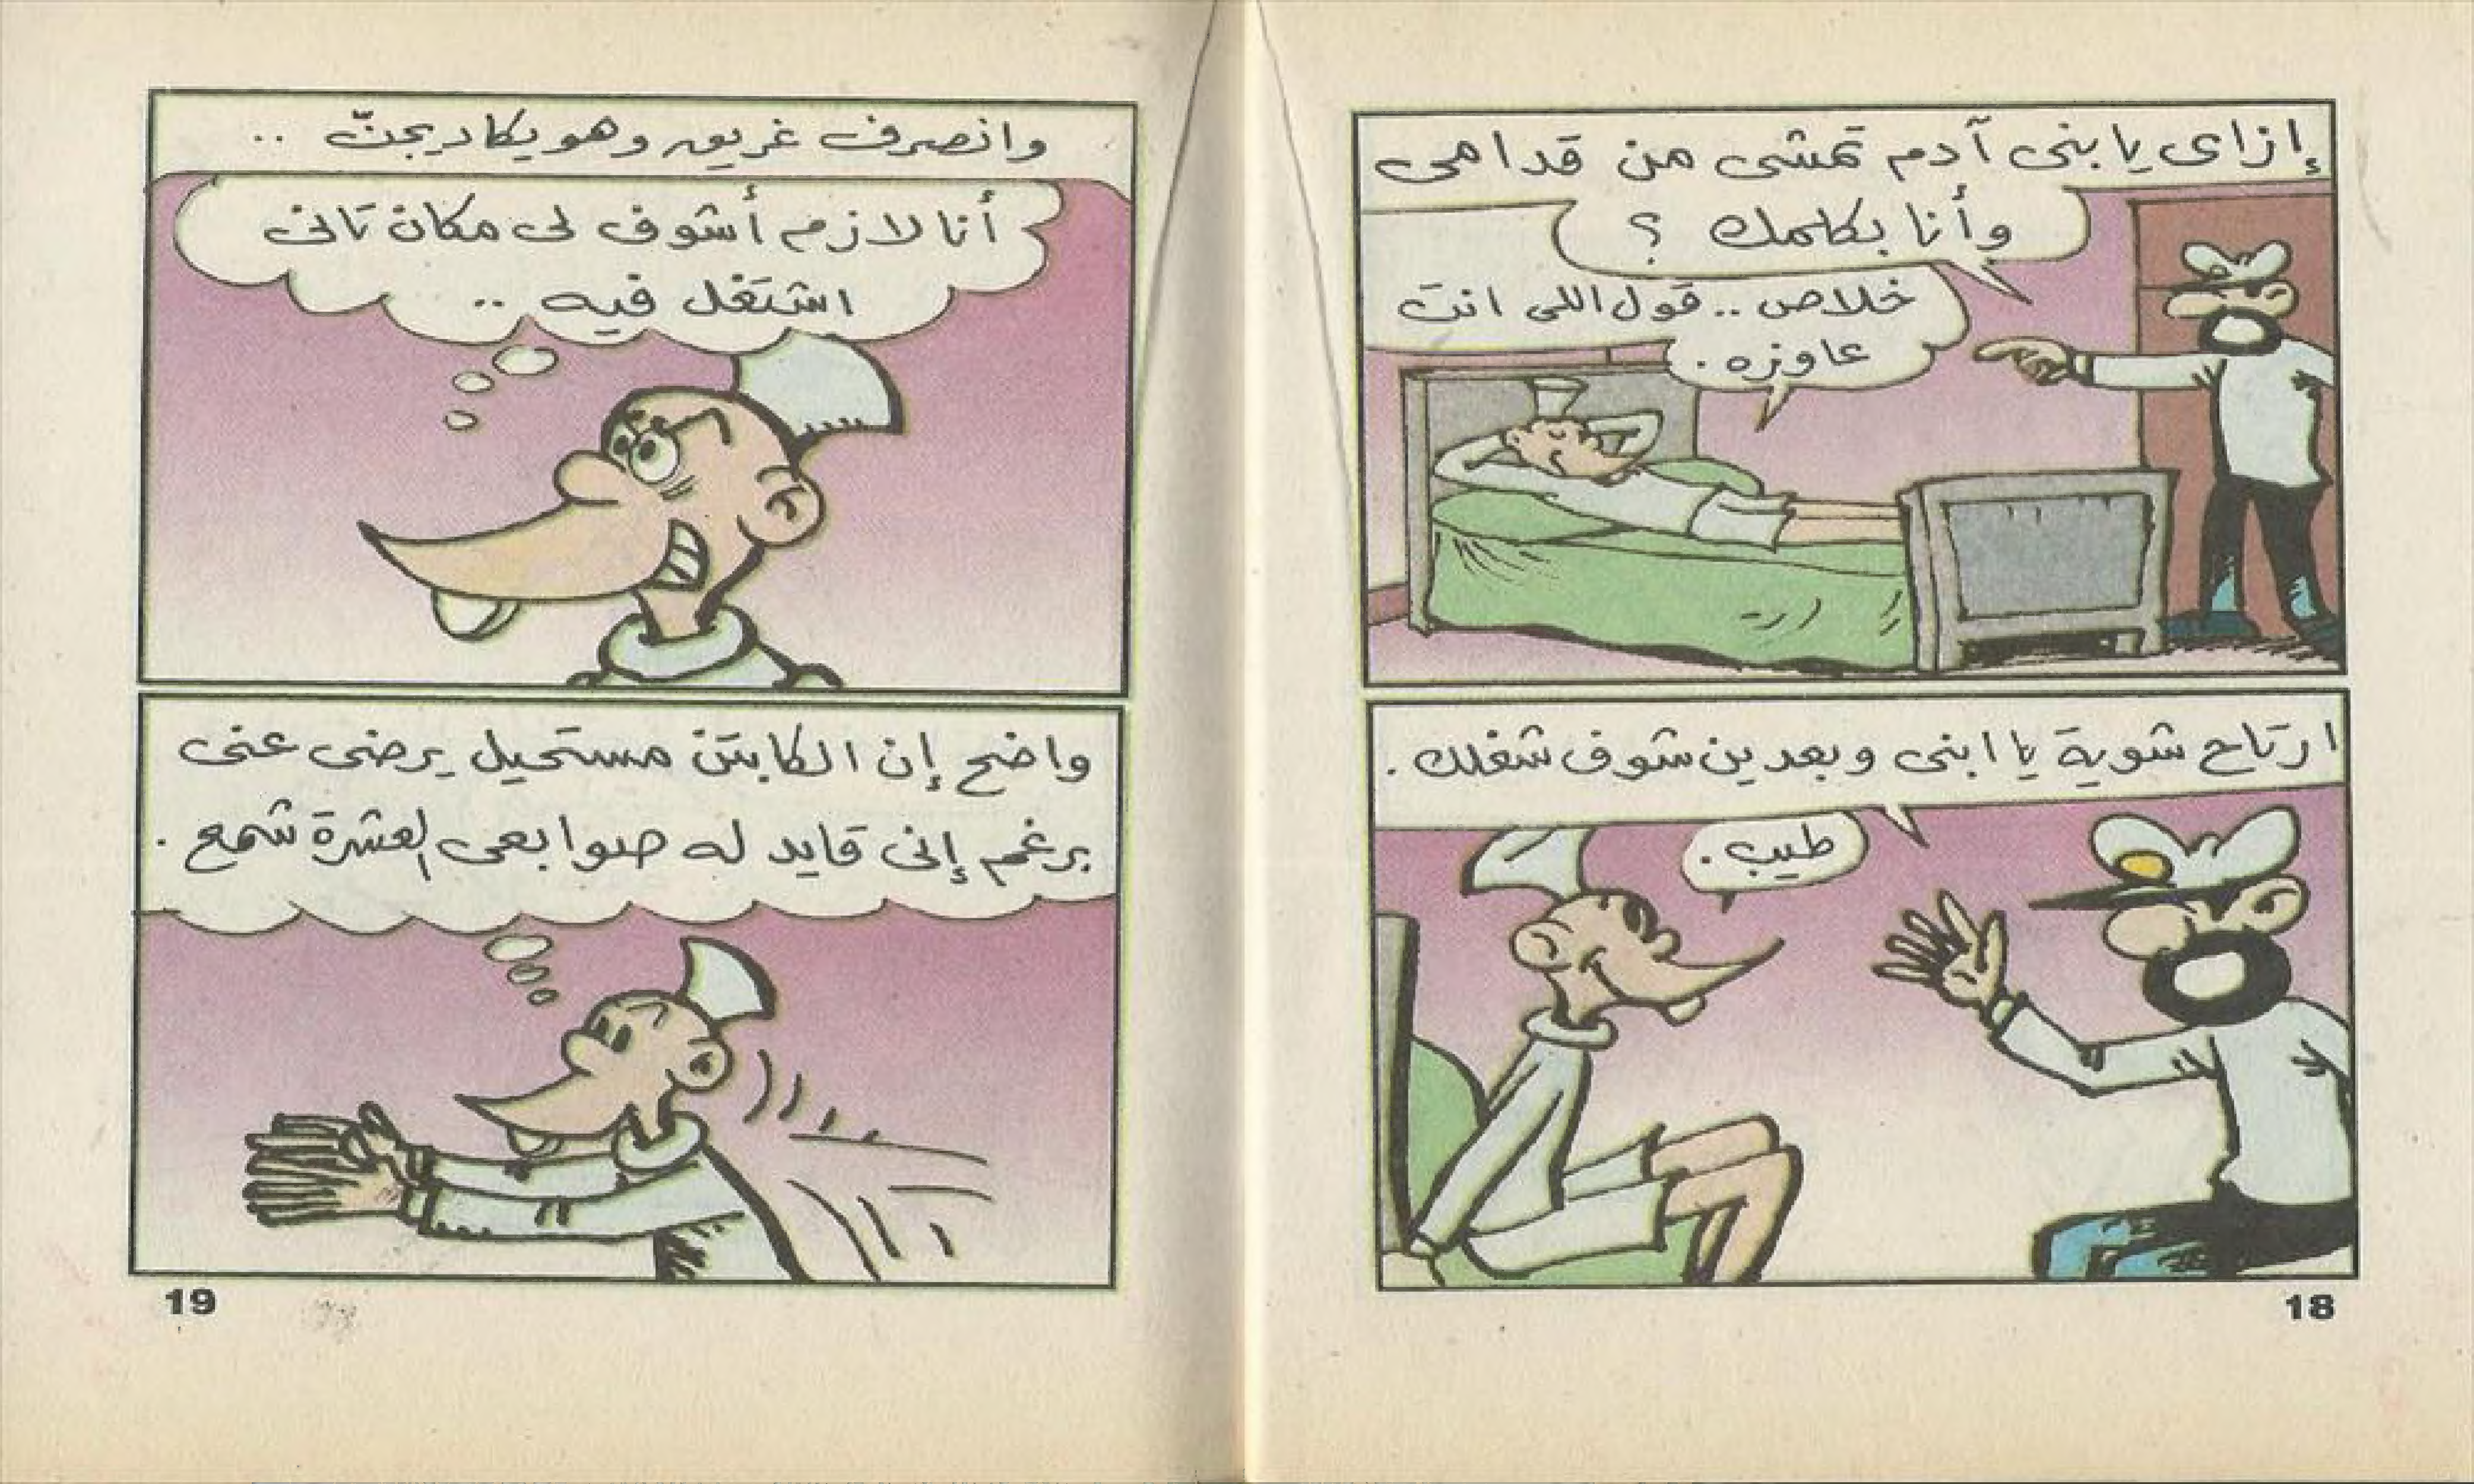 إزاى يا بنى آدم تمشى من قدامى
وأنا بكلمك ؟
خلاص .. قول اللى انت
عاوزه .
ارتاح شوية يا ابنى وبعدين شوف شغلك .
طيب .
18
وانصرف غريق وهو يكاد يجنّ ..
أنا لازم أشوف لى مكان تانى
اشتغل فيه ..
واضح إن الكابتن مستحيل يرضى عنى
برغم إنى قايد له صوابعى العشرة شمع .
19